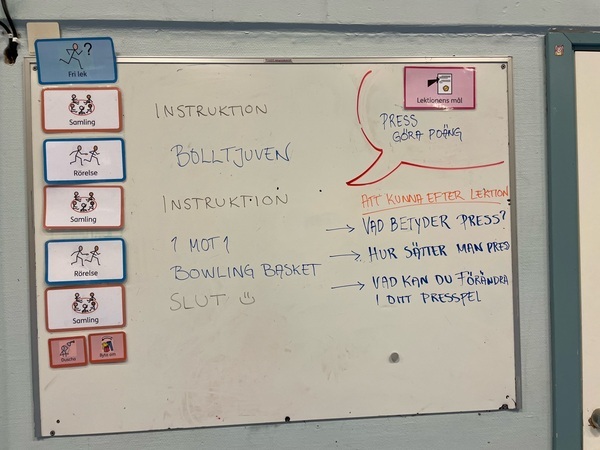 Fri lek
?
Samling
INSTRUKTION
Rörelse
BOLLTJUVEN
Samling
INSTRUKTION
Rörelse
1 MOT 1
BOWLING BASKET
Samling
SLUT
Duscha
Byta om
Lektionens mål
PRESS
GÖRA POÄNG
ATT KUNNA EFTER LEKTION
→ VAD BETYDER PRESS?
→ HUR SÄTTER MAN PRESS
→ VAD KAN DU FÖRÄNDRA
I DITT PRESSPEL